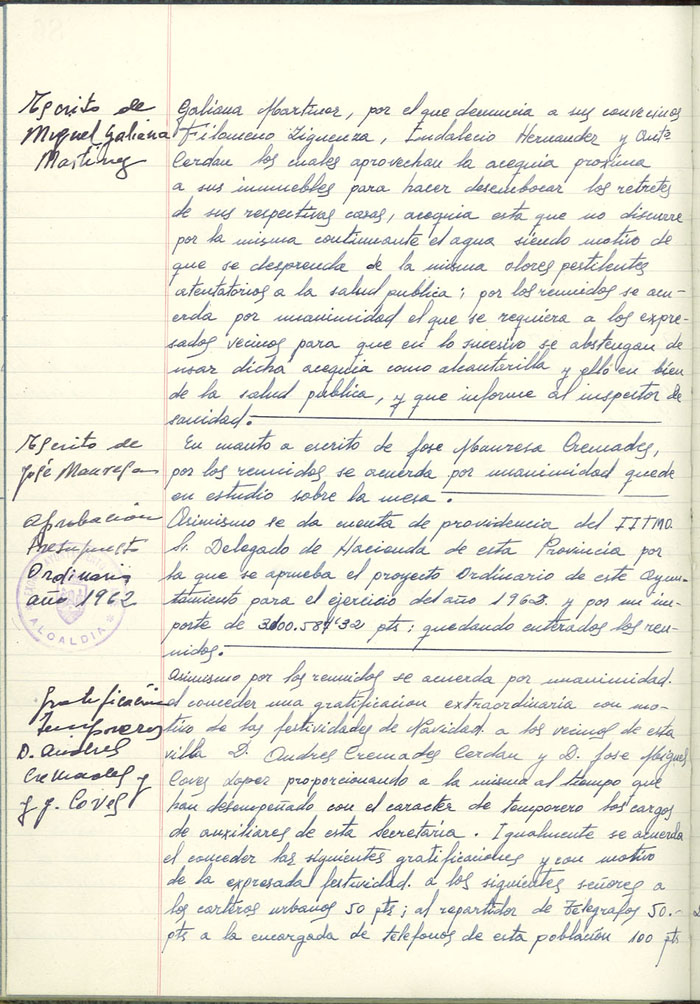 Escrito de
Miguel Galiana
Martinez
Galiana Martinez, por el que denuncia a sus convecinos
Filomeno Ziguenza, Indalecio Hernandez y Antº
Cerdan los cuales aprovechan la acequia proxima
a sus inmuebles para hacer desembocar los retretes
de sus respectivas casas, acequia esta que no discurre
por la misma continuante el agua siendo motivo de
que se desprenda de la misma olores pestilentes
atentatorios a la salud publica; por los reunidos se acu-
erda por unanimidad el que se requiera a los expre-
sados vecinos para que en lo sucesivo se abstengan de
usar dicha acequia como alcantarilla y ello en bien
de la salud pública, y que informe al inspector de
sanidad.
Escrito de
José Manresa
En cuanto a escrito de Jose Manresa Cremades,
por los reunidos se acuerda por unanimidad quede
en estudio sobre la mesa.
Aprobación
Presupuesto
Ordinario
año 1962
ALCALDIA
Asimismo se da cuenta de providencia del IITMO
Sr. Delegado de Hacienda de esta Provincia por
la que se aprueba el proyecto Ordinario de este Ayun-
tamiento para el ejercicio del año 1962. y por un im-
porte de 587'32 pts; quedando enterados los reu-
nidos.
Gratificación
Temporeros
D. Andres
Cremades y
J. Coves
Asimismo por los reunidos se acuerda por unanimidad.
el conceder una gratificacion extraordinaria con mo-
tivo de las festividades de Navidad. a los vecinos de esta
villa D. Andres Cremades Cerdan y D. Jose Miguel
Coves Lopez proporcionando a la misma al tiempo que
han desempeñado con el caracter de temporero los cargos
de auxiliares de esta Secretaria. Igualmente se acuerda
el conceder las siguientes gratificaciones y con motivo
de la expresada festividad. a los siguientes señores a
los carteros urbanos 50 pts; al repartidor de Telegrafos 50.-
pts a la encargada de telefonos de esta población 100 pts